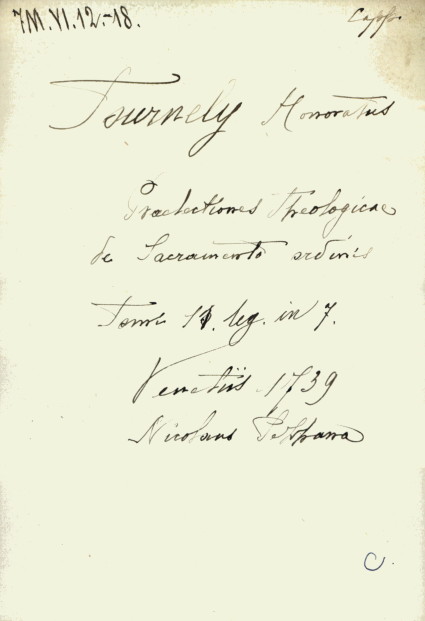 7M.VI.12.-18.
Tournely Honoratus
Praelectiones Theologicae
de Sacramento ordinis
Tomi 11. leg. in 7.
Venetiis 1739
Nicolaus Pezzana
C.